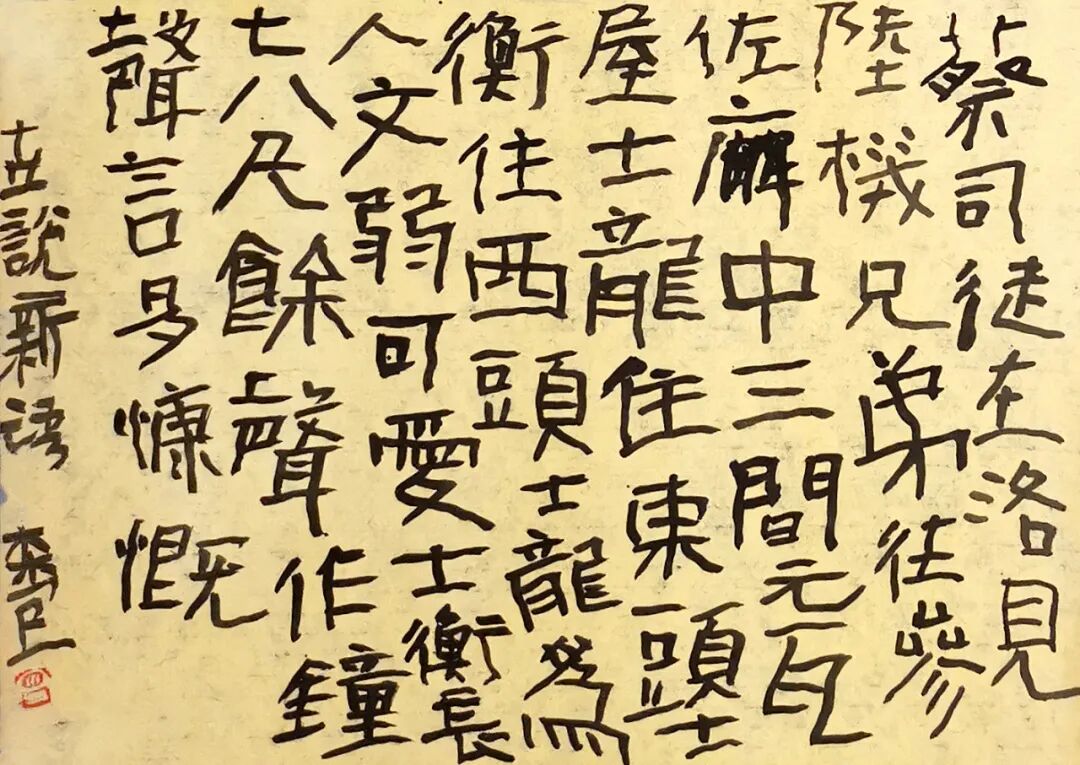 蔡司徒在洛見
陸機兄弟往參
佐廨中三間元瓦
屋士龍住東頭士
衡住西頭士龍為
人文弱可愛士衡長
七八尺餘聲作鐘
聲言多慷慨
世說新語